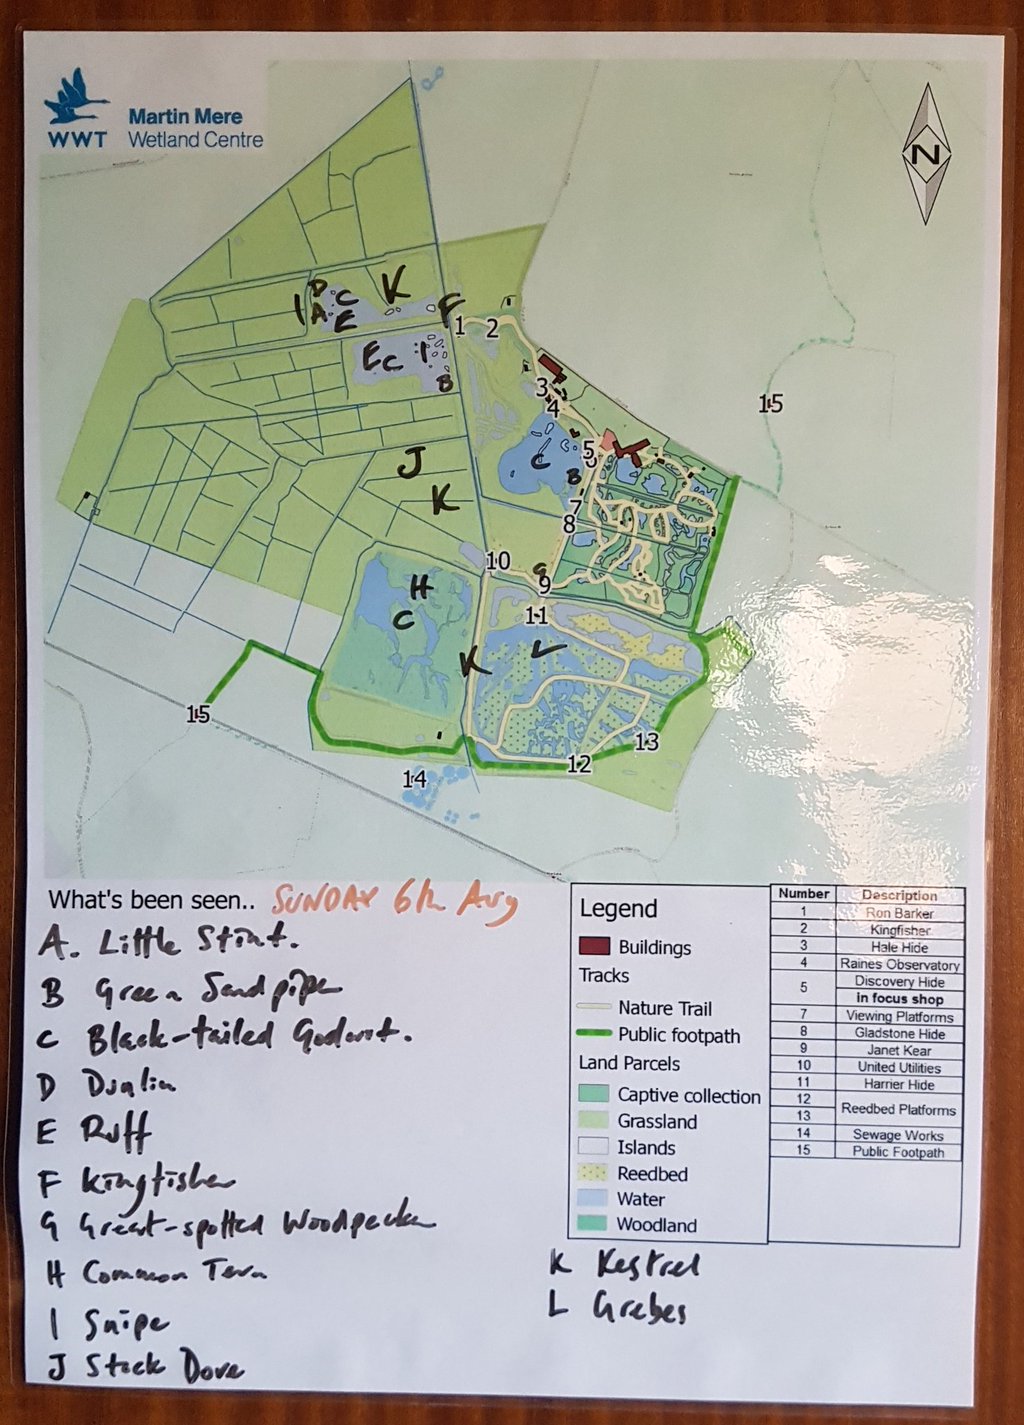 WWT
Martin Mere
Wetland Centre
N
D
K
I
C
A
E
F
1
2
E
C
I
B
3
4
15
J
5
C
B
K
7
8
10
G
9
H
11
C
L
K
15
13
12
14
What's been seen.. SUNDAY 6th Aug
A. Little Stint.
B Green Sandpiper
C Black-tailed Godwit.
D Dunlin
E Ruff
F Kingfisher
G Great-spotted Woodpecker
H Common Tern
I Snipe
J Stock Dove
K Kestrel
L Grebes
Legend
Buildings
Tracks
Nature Trail
Public footpath
Land Parcels
Captive collection
Grassland
Islands
Reedbed
Water
Woodland
Number Description
1 Ron Barker
2 Kingfisher
3 Hale Hide
4 Raines Observatory
5 Discovery Hide
in focus shop
7 Viewing Platforms
8 Gladstone Hide
9 Janet Kear
10 United Utilities
11 Harrier Hide
12
13 Reedbed Platforms
14 Sewage Works
15 Public Footpath